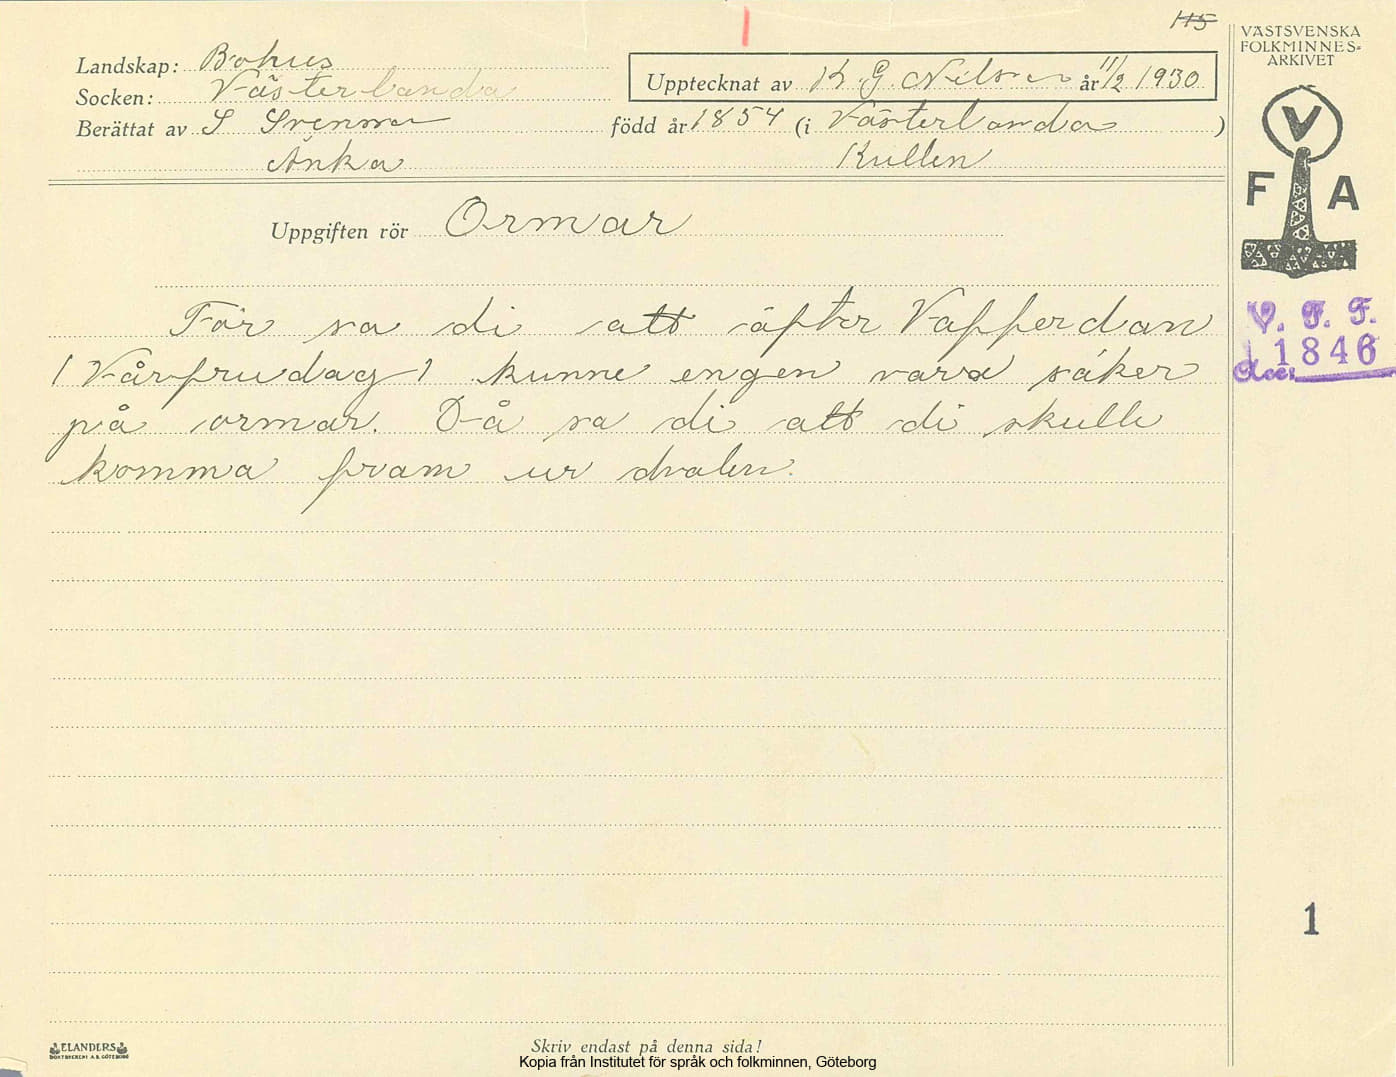 115
VÄSTSVENSKA
FOLKMINNES-
ARKIVET
Landskap: Bohus
Upptecknat av K G. Nilsson år 11/2 1930
Socken: Västerlanda
Berättat av S Svensson född år 1854 (i Västerlanda )
Änka Kullen
V
F A
Uppgiften rör Ormar
V. F. F.
1846
Acc.
För sa di att äfter Vafferdan
(Vårfrudag) kunne engen vara säker
på ormar. Då sa di att di skulle
komma fram ur dvalen.
1
ELANDERS
BOKTRYCKERI A.B. GÖTEBORG
Skriv endast på denna sida!
Kopia från Institutet för språk och folkminnen, Göteborg